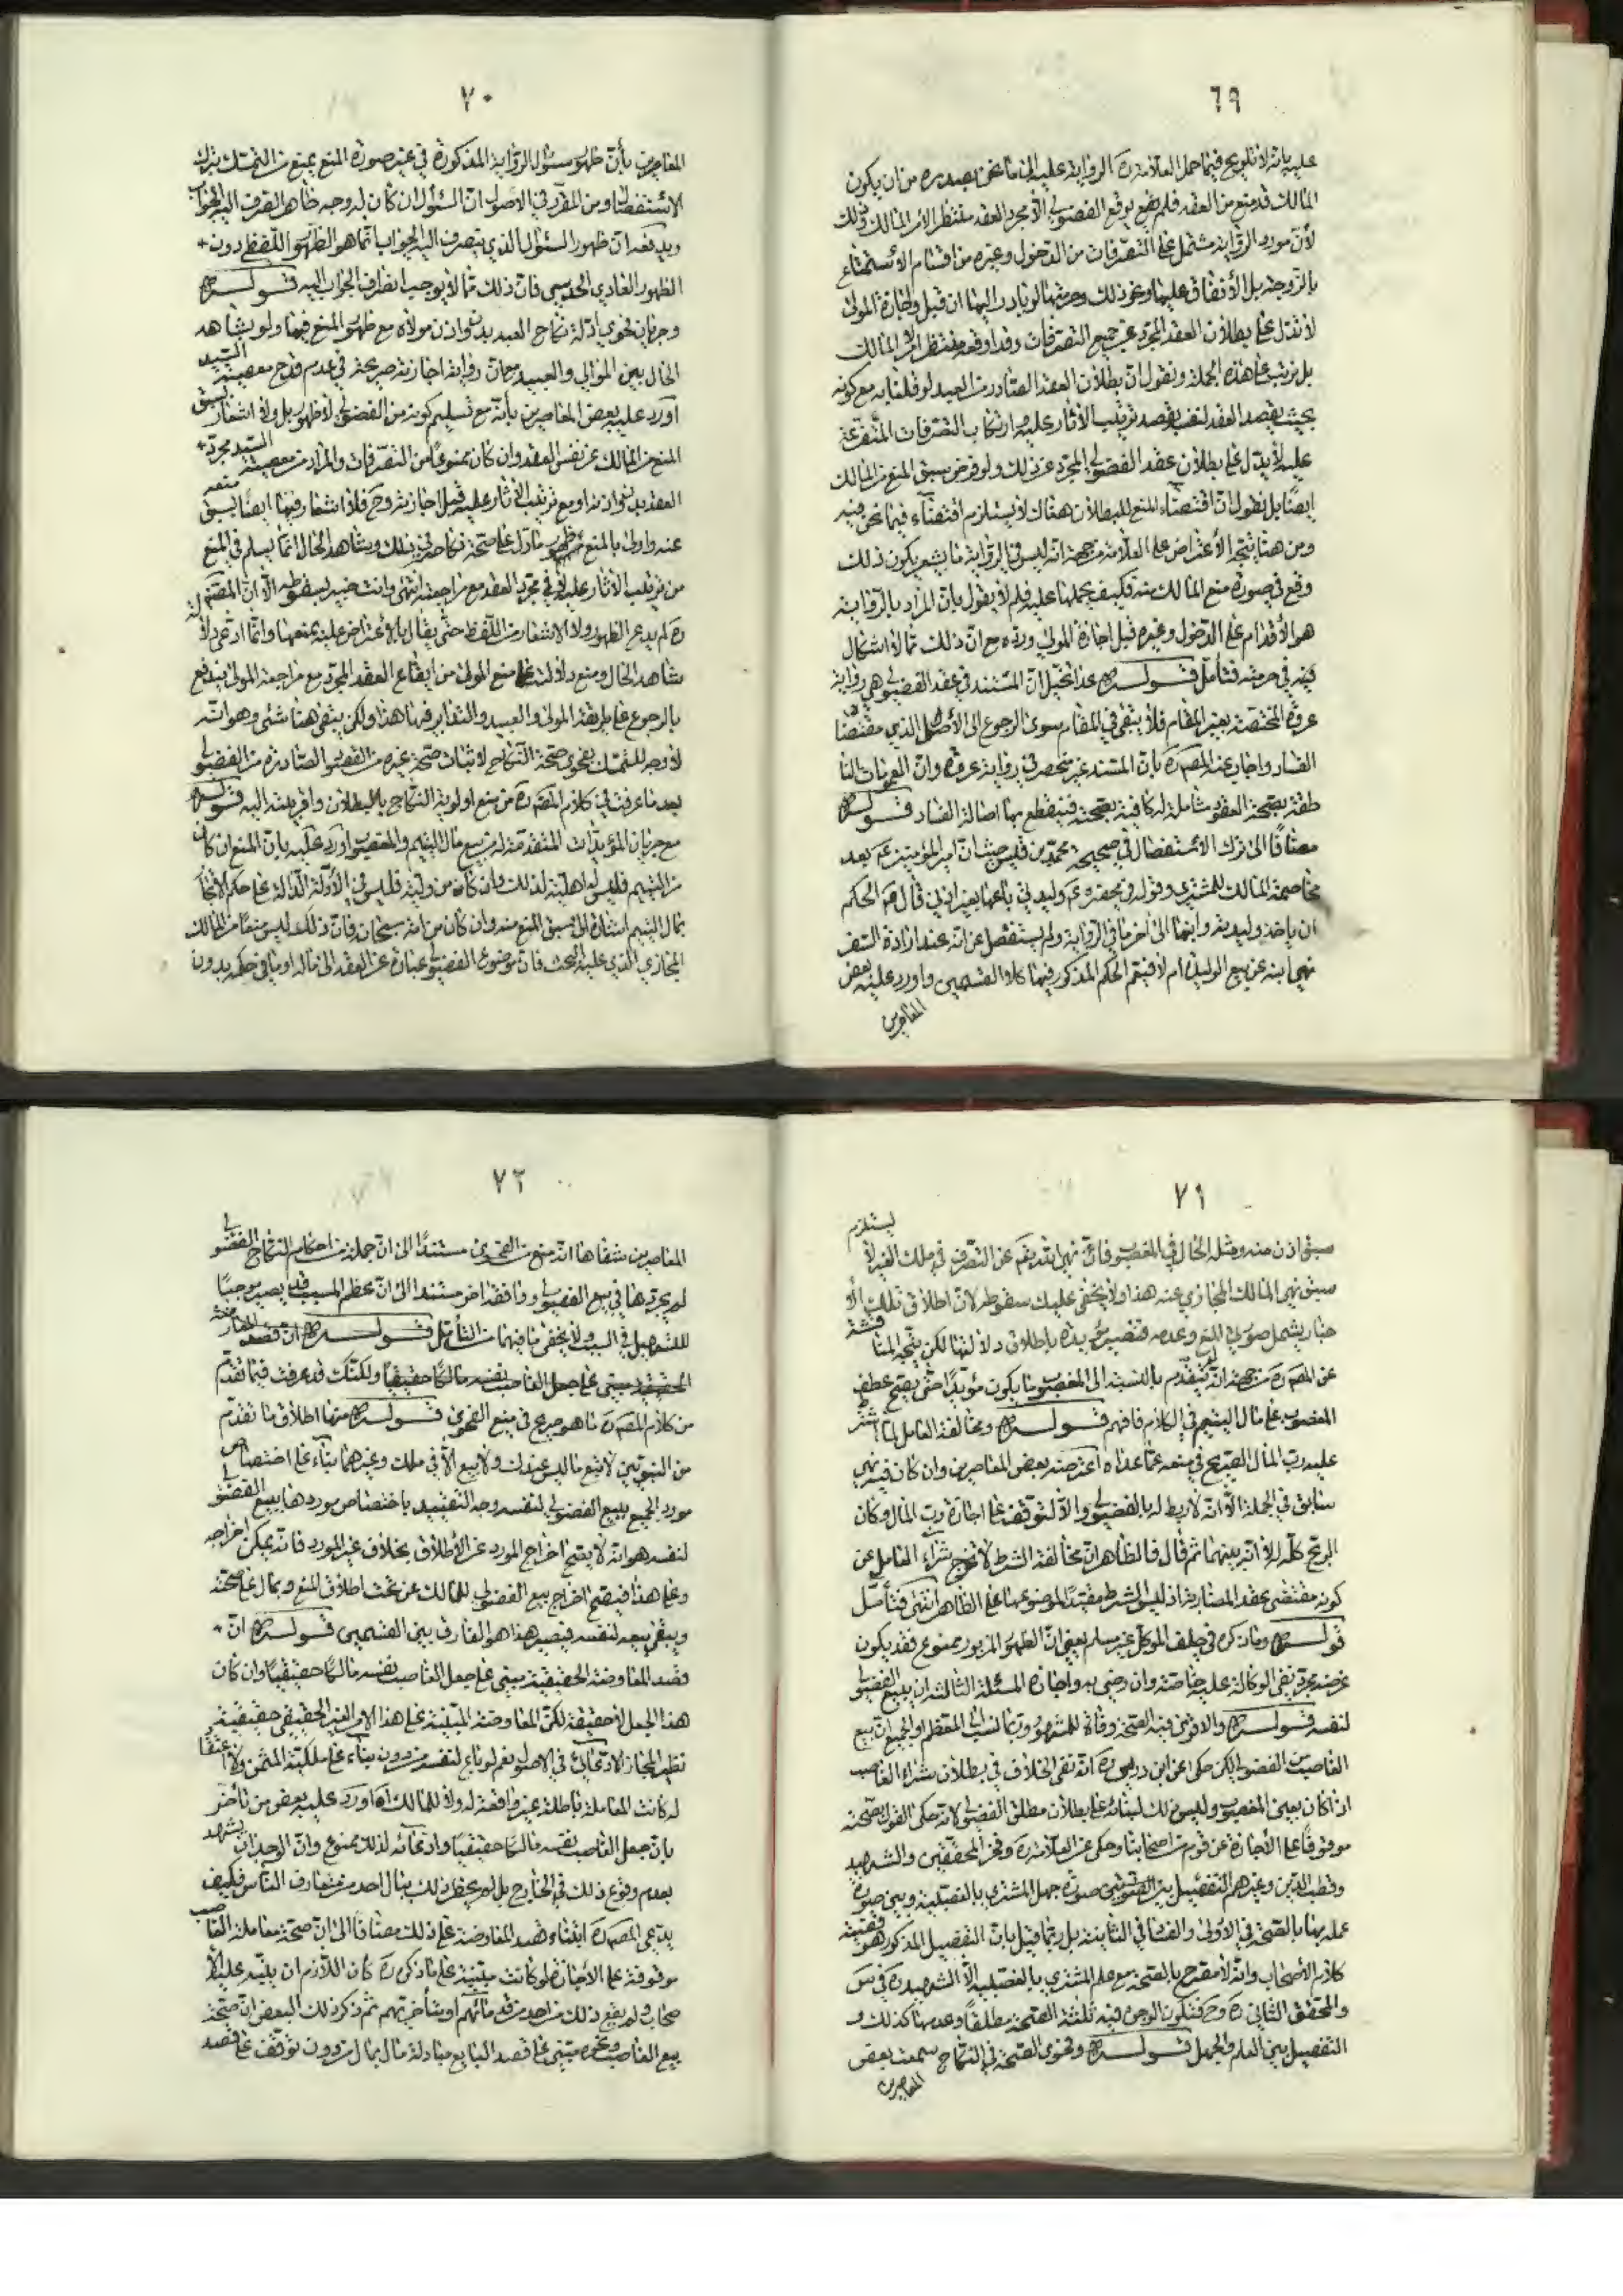 ٦٩
عليه بانه لا تلويح فيما حمل العلامة ره الرواية عليه الى ما نحن بصدده من ان يكون
المالك قد منع من العقد فلم يقع الفضولي الا مجرد العقد منتظرا لامر المالك وذلك
لأن مورد الرواية مشتمل على التصرفات من الدخول وغيره من اقسام الاستمتاع
بالزوجة بل الأنفاق عليها ونحو ذلك وحرمتها لو بادر اليها ان قبل واجازة المولى
لا تدل على بطلان العقد المجرد عن جميع التصرفات وقد اوقعه منتظرا لأمر المالك
بل نزيد على هذه الجملة ونقول ان بطلان العقد الصادر من العبد لو قلنا به مع كونه
بحيث يقصد العقد لنفسه بقصد ترتيب الآثار عليه وارتكاب التصرفات المتفرعة
عليه لا يدل على بطلان عقد الفضولي المجرد عن ذلك ولو فرض سبق المنع من المالك
ايضًا بل نقول ان اقتضاء المنع للبطلان هناك لا يستلزم اقتضاء فيما نحن فيه
ومن هنا يتجه الأعتراض على العلامة من جهة انه ليس في الرواية ما يشعر بكون ذلك
وقع في صورة منع المالك منه فكيف يحملها عليه فلم لا يقول بان المراد بالرواية
هو الأقدام على الدخول وغيره قبل اجازة المولى ورده مع ان ذلك مما لا اشكال
فيه في حرمته فتأمل قوله عدا تخيل ان المستند في عقد الفضولي هي رواية
عروة المختصة بغير المقام فلا يبقى في المقام سوى الرجوع الى الأصل الذي مقتضاه
الفساد واجاب عنه المصـ ره بان المستند غير منحصر في رواية عروة وان العمومات النا
طقة بصحة العقود شاملة له كافية بصحته فينقطع بها اصالة الفساد قوله
مضافًا الى ترك الأستفصال في صحيحة محمد بن قيس حيث ان امير المؤمنين ع بعد
مخاصمة المالك للمشتري وقوله في محضره ع وليدتي باعها بغير اذني قال ع الحكم
ان ياخذ وليدته وابنها الى اخر ما في الرواية ولم يستفصل عن انه عند ارادة السفر
نهى ابنه عن بيع الوليدة ام لا فيعم الحكم المذكور فيها كلا القسمين واورد عليه بعض
المعاصرين
٧٠
المعاصرين بأن ظهور سؤال الرواية المذكورة في غير صورة المنع يمنع من التمسك بترك
الاستفصال ومن المقرر في الاصول ان السؤال ان كان له وجه ظاهر انصرف اليه الجواب
ويدفعه ان ظهور السئوال الذي ينصرف اليه الجواب انما هو الظهور اللفظي دون
الظهور العادي الحدسي فان ذلك مما لا يوجب انصراف الجواب اليه قوله
وجريان فحوى ادلة نكاح العبد بدون اذن مولاه مع ظهور المنع فيها ولو بشاهد
الحال بين الموالي والعبيد مع ان رواية اجازته صريحة في عدم قدح معصية السيد
اورد عليه بعض المعاصرين بأنه مع تسليم كونه من الفضولي لا ظهور بل ولا اشعار بسبق
المنع من المالك عن نفس العقد وان كان ممنوعًا من التصرفات والمراد من معصية السيد مجرد
العقد بدون اذنه او مع ترتيب الآثار عليه قبل اجازته وح فلا اشعار فيها ايضًا بسبق منعه
عنه واولى بالمنع ظهور ما دل على صحة نكاحه في ذلك وشاهد الحال انما يسلم في المنع
من ترتيب الآثار عليه لا في مجرد العقد مع مراجعته انتهى وانت خبير بسقوطه الا ان المصنف
ره لم يدع الظهور ولا الاشعار من اللفظ حتى يقال بالأعتراض عليه بمنعها وانما ادعى دلالة
شاهد الحال ومنع دلالته على منع المولى من ايقاع العقد المجرد مع مراجعة المولى يندفع
بالرجوع على طريقة المولى والعبيد والتغاير فيها هذا ولكن يبقى هنا شئ وهو انه
لا وجه للتمسك بفحوى صحة النكاح لاثبات صحة غيره من العقود الصادرة من الفضولي
بعد ما عرفت في كلام المصـ ره من منع اولوية النكاح بالبطلان واقربيته اليه قوله
مع جريان المؤيدات المتقدمة له من بيع مال اليتيم والمغصوب اورد عليه بان المنع ان كان
من اليتيم فليس له اهلية لذلك وان كان من وليه فليس في الأدلة الدالة على حكم الاتجار
بمال اليتيم اشارة الى سبق المنع منه وان كان من الله سبحانه فان ذلك ليس منعًا من المالك
المجازي الذي عليه البحث فان موضوع الفضولي عبارة عن العقد الى ماله او ما في حكمه بدون
٧١
سبق اذن منه ومثله الحال في المغصوب فان نهي الله تعالى عن التصرف في ملك الغير لا يستلزم
سبق نهي المالك المجازي عنه هذا ولا يخفى عليك سقوطه لان اطلاق تلك الأ
خبار يشمل صورتي المنع وعدمه فتصير مؤيدة باطلاق دلالتها لكن يتجه المناقشة
عن المصـ ره من جهة انه لم يتقدم بالنسبة الى المغصوب ما يكون مؤيدًا حتى يصح عطف
المغصوب على مال اليتيم في الكلام فافهم قوله ومخالفة العامل لما اشترط
عليه رب المال الصريح في منعه عما عداه اعترضه بعض المعاصرين وان كان فيه نهي
سابق في الجملة الا انه لا ربط له بالفضولي والا لتوقف على اجازة رب المال وكان
الربح كله له الا انه بينهما ثم قال فالظاهر ان مخالفة الشرط لا تخرج شراء العامل عن
كونه مقتضى عقد المضاربة اذ ليس الشرط مقيدًا لموضوعها على الظاهر انتهى فتأمل
قوله وما ذكره في حلف الموكل غير مسلم يعني ان الظهور المزبور ممنوع فقد يكون
غرضه مجرد نفي الوكالة عليه خاصة وان رضي به واجازه المسئلة الثالثة ان يبيع الفضولي
لنفسه قوله والاقوى فيه الصحة وفاقًا للمشهور وربما نسب الى المعظم او الجميع ان بيع
الغاصب من الفضولي لكن حكى عن ابن ادريس ره انه نفى الخلاف في بطلان شراء الغاصب
اذا كان بعين المغصوب وليس ذلك لبنائه على بطلان مطلق الفضولي لانه حكى القول بصحته
موقوفًا على الأجازة عن قوم من اصحابنا وحكى عن العلامة ره وفخر المحققين والشهيد
وقطب الدين وغيرهم التفصيل بين الصورتين صورة جهل المشتري بالغصبية وبين صورة
علمه بها بالصحة في الأولى والفساد في الثانية بل ربما قيل بان التفصيل المذكور هو قضية
كلام الأصحاب وانه لا مصرح بالصحة مع علم المشتري بالغصبية الا الشهيد ره في س
والمحقق الثاني ره وح فتكون الوجوه فيه ثلثة الصحة مطلقًا وعدمها كذلك و
التفصيل بين العلم والجهل قوله وفحوى الصحة في النكاح سمعت بعض
المعاصرين
٧٢
المعاصرين شفاها انه منع من الفحوى مستندًا الى ان جملة من احكام النكاح الفضولي
لم يجروها في بيع الفضولي ووافقه اخر مستندا الى ان عظم المسبب قد يصير موجبًا
للتسهيل في السبب ولا يخفى ما فيهما من التأمل قوله ان قصد المعاوضة
الحقيقية مبني على جعل الغاصب نفسه مالكًا حقيقيا ولكنك قد عرفت فيما تقدم
من كلام المصـ ره ما هو صريح في منع الفحوى قوله منها اطلاق ما تقدم
من النبويين لا تبع ما ليس عندك ولا بيع الا في ملك وغيرهما بناء على اختصاص
مورد الجميع ببيع الفضولي لنفسه وجه التقييد باختصاص موردها ببيع الفضولي
لنفسه هو انه لا يصح اخراج المورد عن الأطلاق بخلاف غير المورد فانه يمكن اخراجه
وعلى هذا فيصح اخراج بيع الفضولي للمالك عن تحت اطلاق المنع ويقال على صحته
ويبقى بيعه لنفسه فيصير هذا هو الفارق بين القسمين قوله ان
قصد المعاوضة الحقيقية مبني على جعل الغاصب نفسه مالكًا حقيقيًا وان كان
هذا الجعل لا حقيقة لكن المعاوضة المبنية على هذا الامر الغير الحقيقي حقيقية
نظير المجاز الادعائي في الاصول نعم لو باع لنفسه من دون بناء على ملكية المثمن ولا اعتقاد
له كانت المعاملة باطلة غير واقعة له ولا للمالك اه اورد عليه بعض من تأخر
بان جعل الغاصب نفسه مالكًا حقيقيًا وادعائه لذلك ممنوع وان الوجدان يشهد
بعدم وقوع ذلك في الخارج بل لم يخطر ذلك ببال احد من متعارف الناس فكيف
يدعي المصـ ره ابتناء قصد المعاوضة على ذلك مضافًا الى ان صحة معاملة الغاصب
موقوفة على الأجازة لو كانت مبتنية على ما ذكره ره كان اللازم ان ينبه عليه الأ
صحاب ولم يقع ذلك من احد من قدمائهم او متأخريهم ثم ذكر ذلك البعض ان صحة
بيع الغاصب ونحوه مبتنى على قصد البايع مبادلة مال بمال من دون توقف على قصد